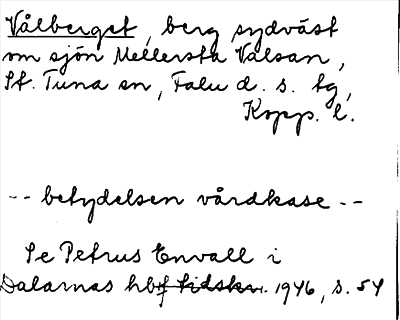 Vålberget, berg sydväst
om sjön Mellersta Valsan,
St. Tuna sn, Falu d. s. tg,
Kopp. l.
-- betydelsen vårdkase --
Se Petrus Envall i
Dalarnas hbf tidskr. 1946, s. 54